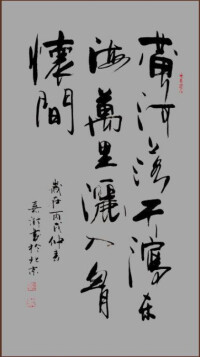 黄河落天瀉东
海萬里灑入胸
懷間
歲在丙戌仲春
書於北京